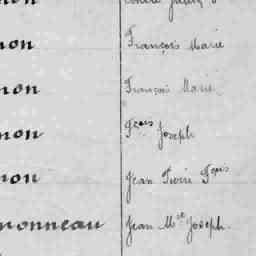 non François Marie
non François Marie
non Fçois Joseph
non Jean Fçois
nonneau Jean Mie Joseph